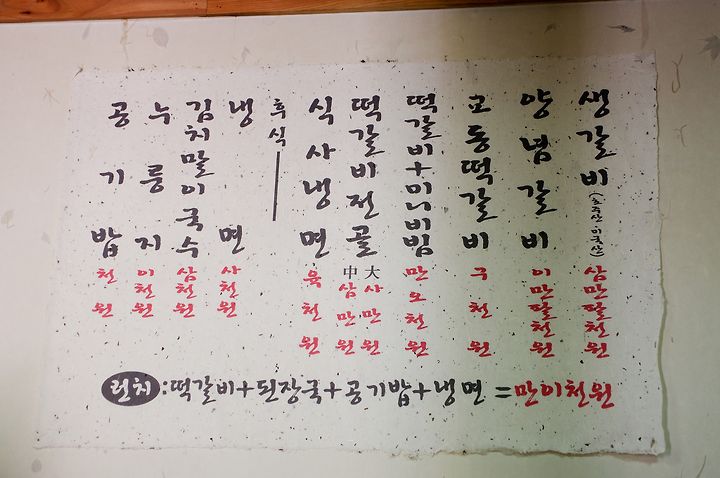 생갈비(호주산·미국산) 삼만팔천원
양념갈비 이만팔천원
교동떡갈비 구천원
떡갈비+미니비빔 만오천원
떡갈비전골 大 사만원 中 삼만원
식사냉면 육천원
후식
냉면 사천원
김치말이국수 삼천원
누룽지 이천원
공기밥 천원
런치:떡갈비+된장국+공기밥+냉면=만이천원